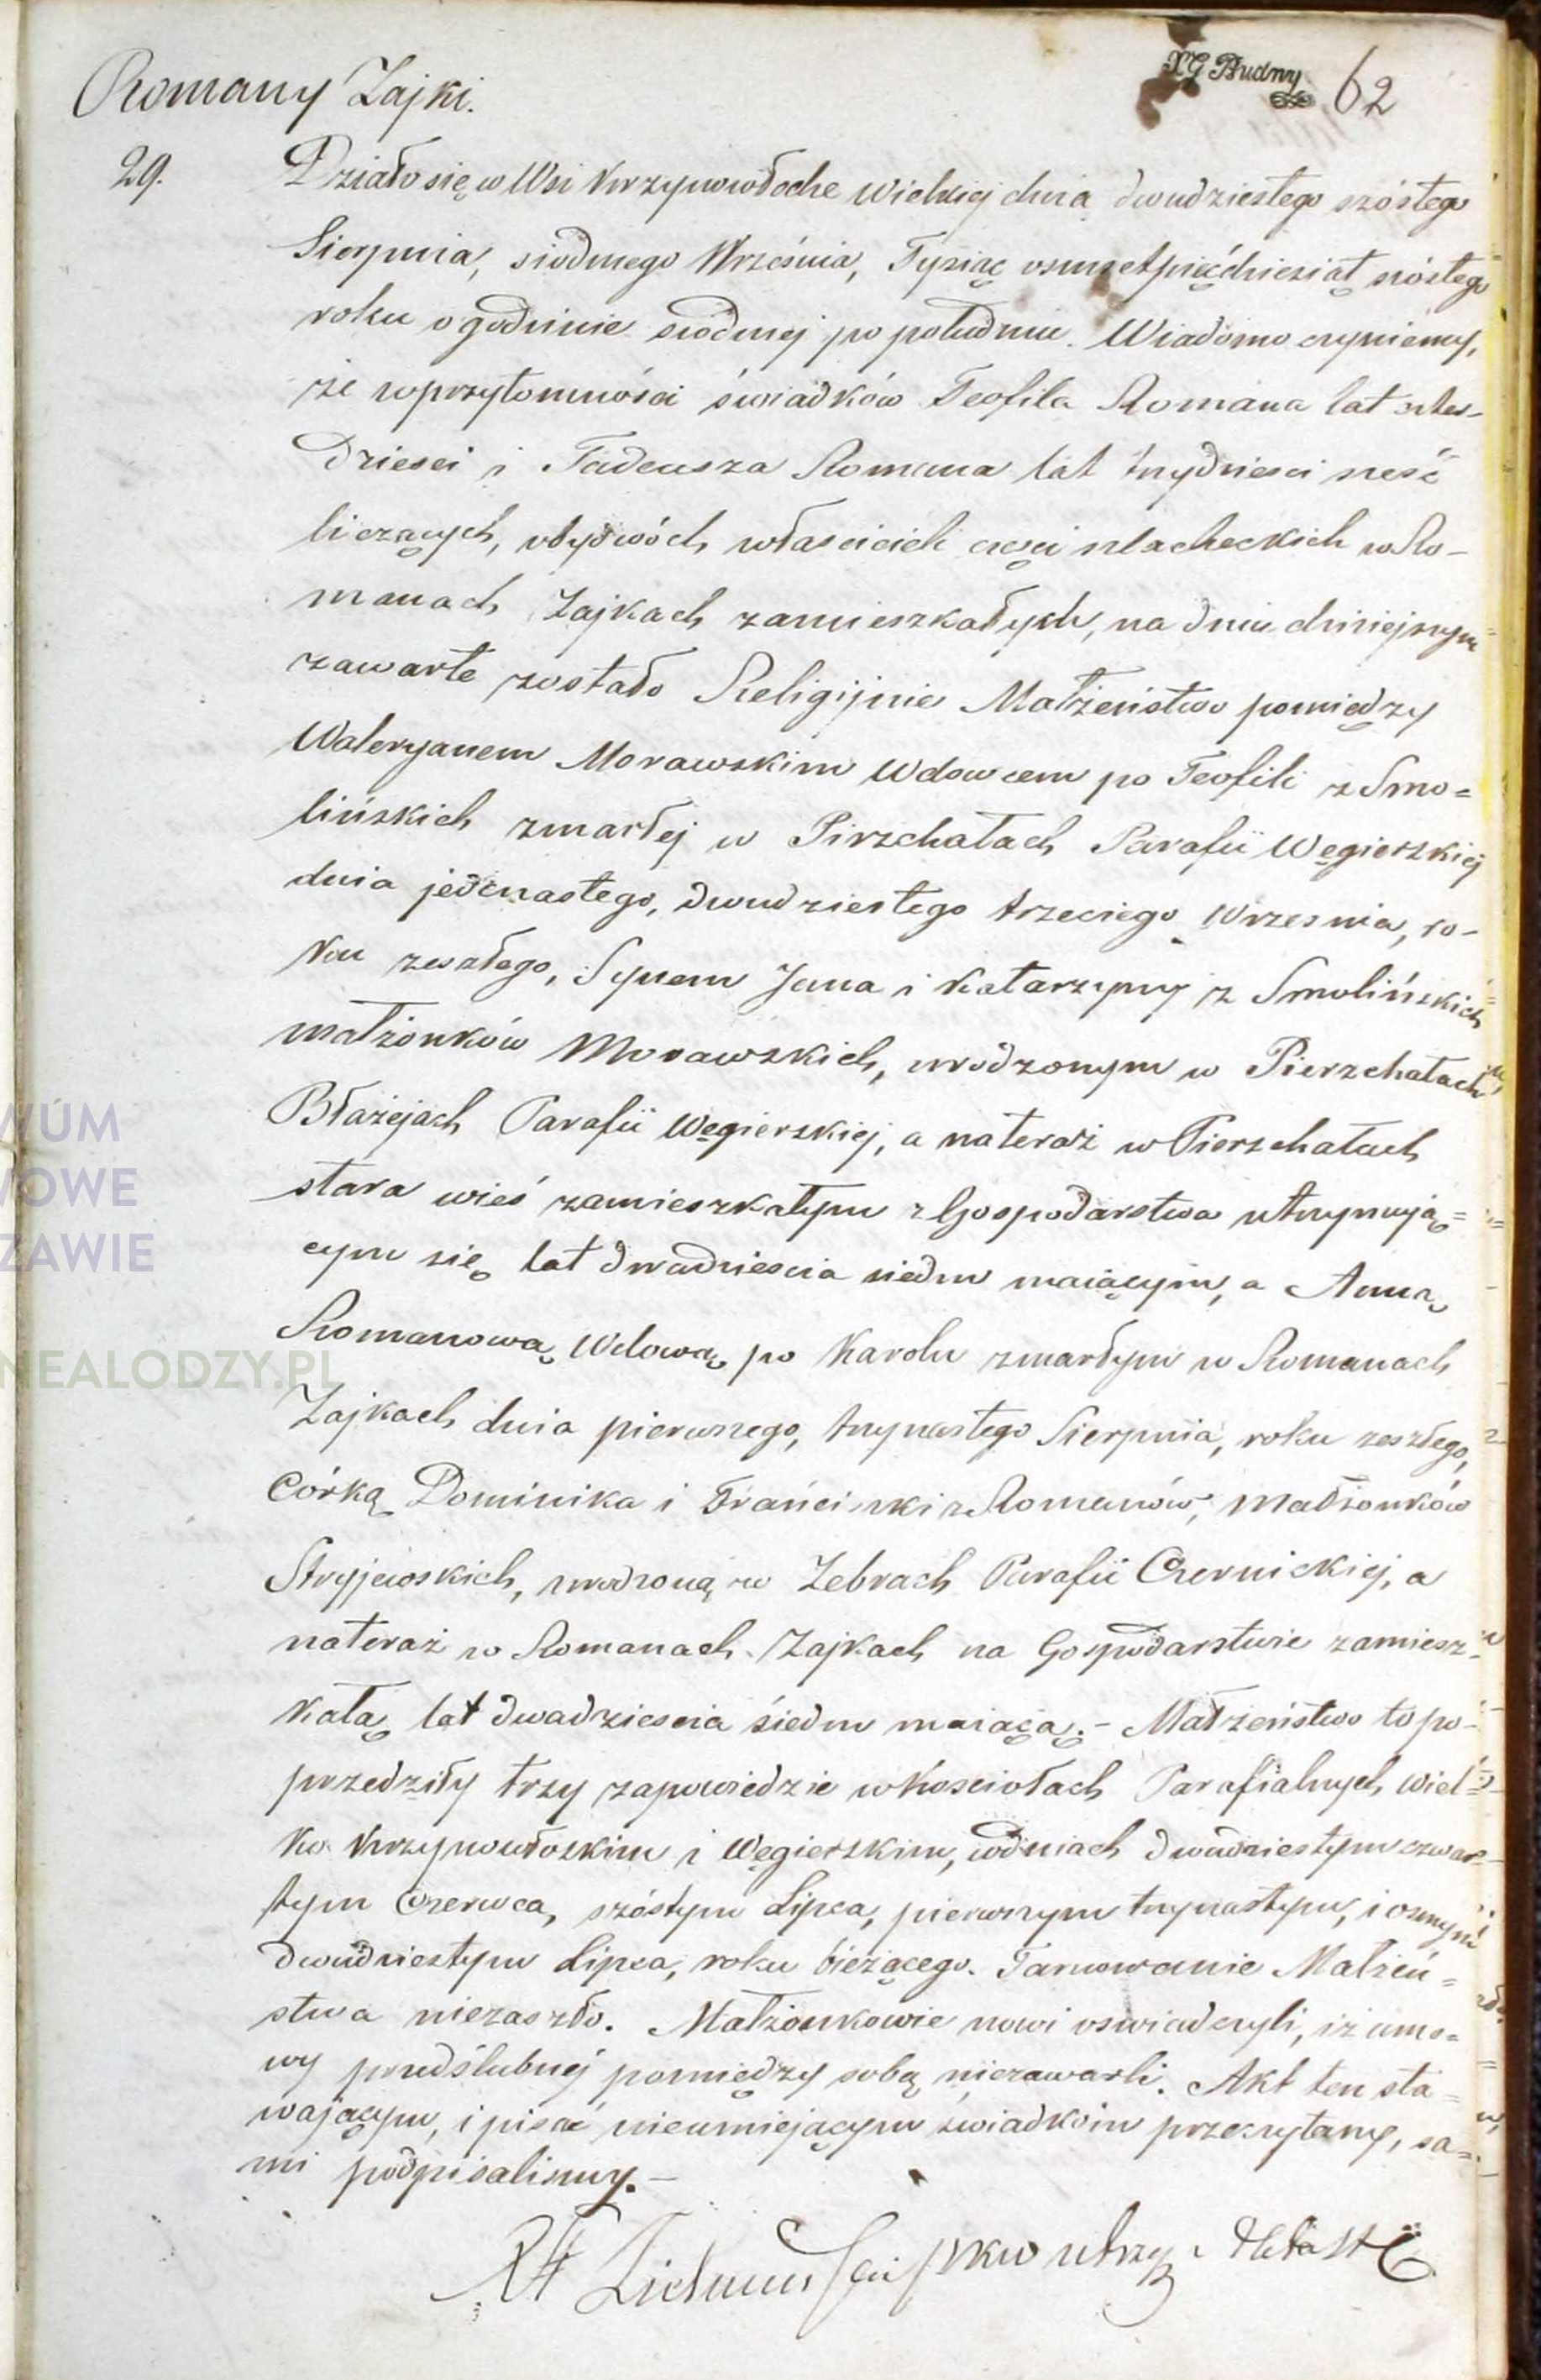 Romany Zajki.
XG Rudny
62
29.
Działo się w Wsi Krzynowłodze Wielkiej dnia dwudziestego szóstego
Sierpnia, siodmego Września, Tysiąc osmset pięćdziesiąt szóstego
roku o godzinie siodmej po południu. Wiadomo czyniemy,
że w przytomności świadków Teofila Romana lat
dziesci i Tadeusza Romana lat trzydziesci sześć
liczących, obydwóch właścicieli części szlacheckich w Ro-
manach Zajkach zamieszkałych, na dniu dzisiejszym
zawarte zostało Religijnie Małżeństwo pomiędzy
Waleryanem Morawskim Wdowcem po Teofili z Smo=
lińskich zmarłej w Pirzchałach Parafii Węgierskiej
dnia jedenastego, dwudziestego trzeciego Wrzesnia, ro-
ku zeszłego, Synem Jana i Katarzyny z Smolińskich
małżonków Morawskich, urodzonym w Pierzchałach
Błażejach Parafii Węgierskiej, a nateraz w Pierzchałach
stara wieś zamieszkałym z Gospodarstwa utrzymują=
cym się lat dwadziescia siedm maiącym, a Anną
Romanową Wdową po Karolu zmarłym w Romanach
Zajkach dnia pierwszego, trzynastego Sierpnia, roku zeszłego,
Córką Dominika i Franciszki z Romanów, małżonków
Stryjewskich, urodzoną w Zebrach Parafii Czernickiej, a
nateraz w Romanach Zajkach na Gospodarstwie zamiesz-
kałą lat dwadziescia śiedm maiącą.- Małżeństwo to po-
przedziły trzy zapowiedzie w Kosciołach Parafialnych Wiel=
ko Krzynowłoskim i Węgierskim, w dniach dwudziestym czwar-
tym Czerwca, szóstym Lipca, pierwszym trzynastym, i osmym
dwudziestym Lipca, roku bieżącego. Tamowanie Małżeń=
stwa niezaszło. Małżonkowie nowi oswiadczyli, iż umo=
wy przedślubnej pomiędzy sobą niezawarli. Akt ten sta=
wającym, i pisać nieumiejącym świadkóm przeczytany, sa=
mi podpisalismy.-